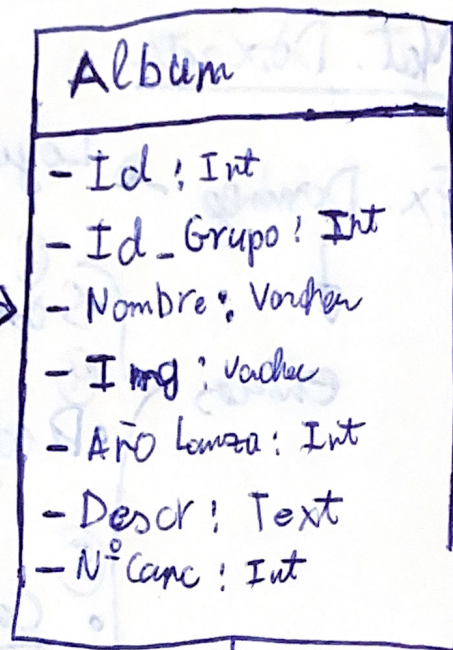 Album
- Id : Int
- Id_Grupo : Int
- Nombre : Varchar
- Img : Vachar
- Año Lanza : Int
- Descr : Text
- Nº Canc : Int